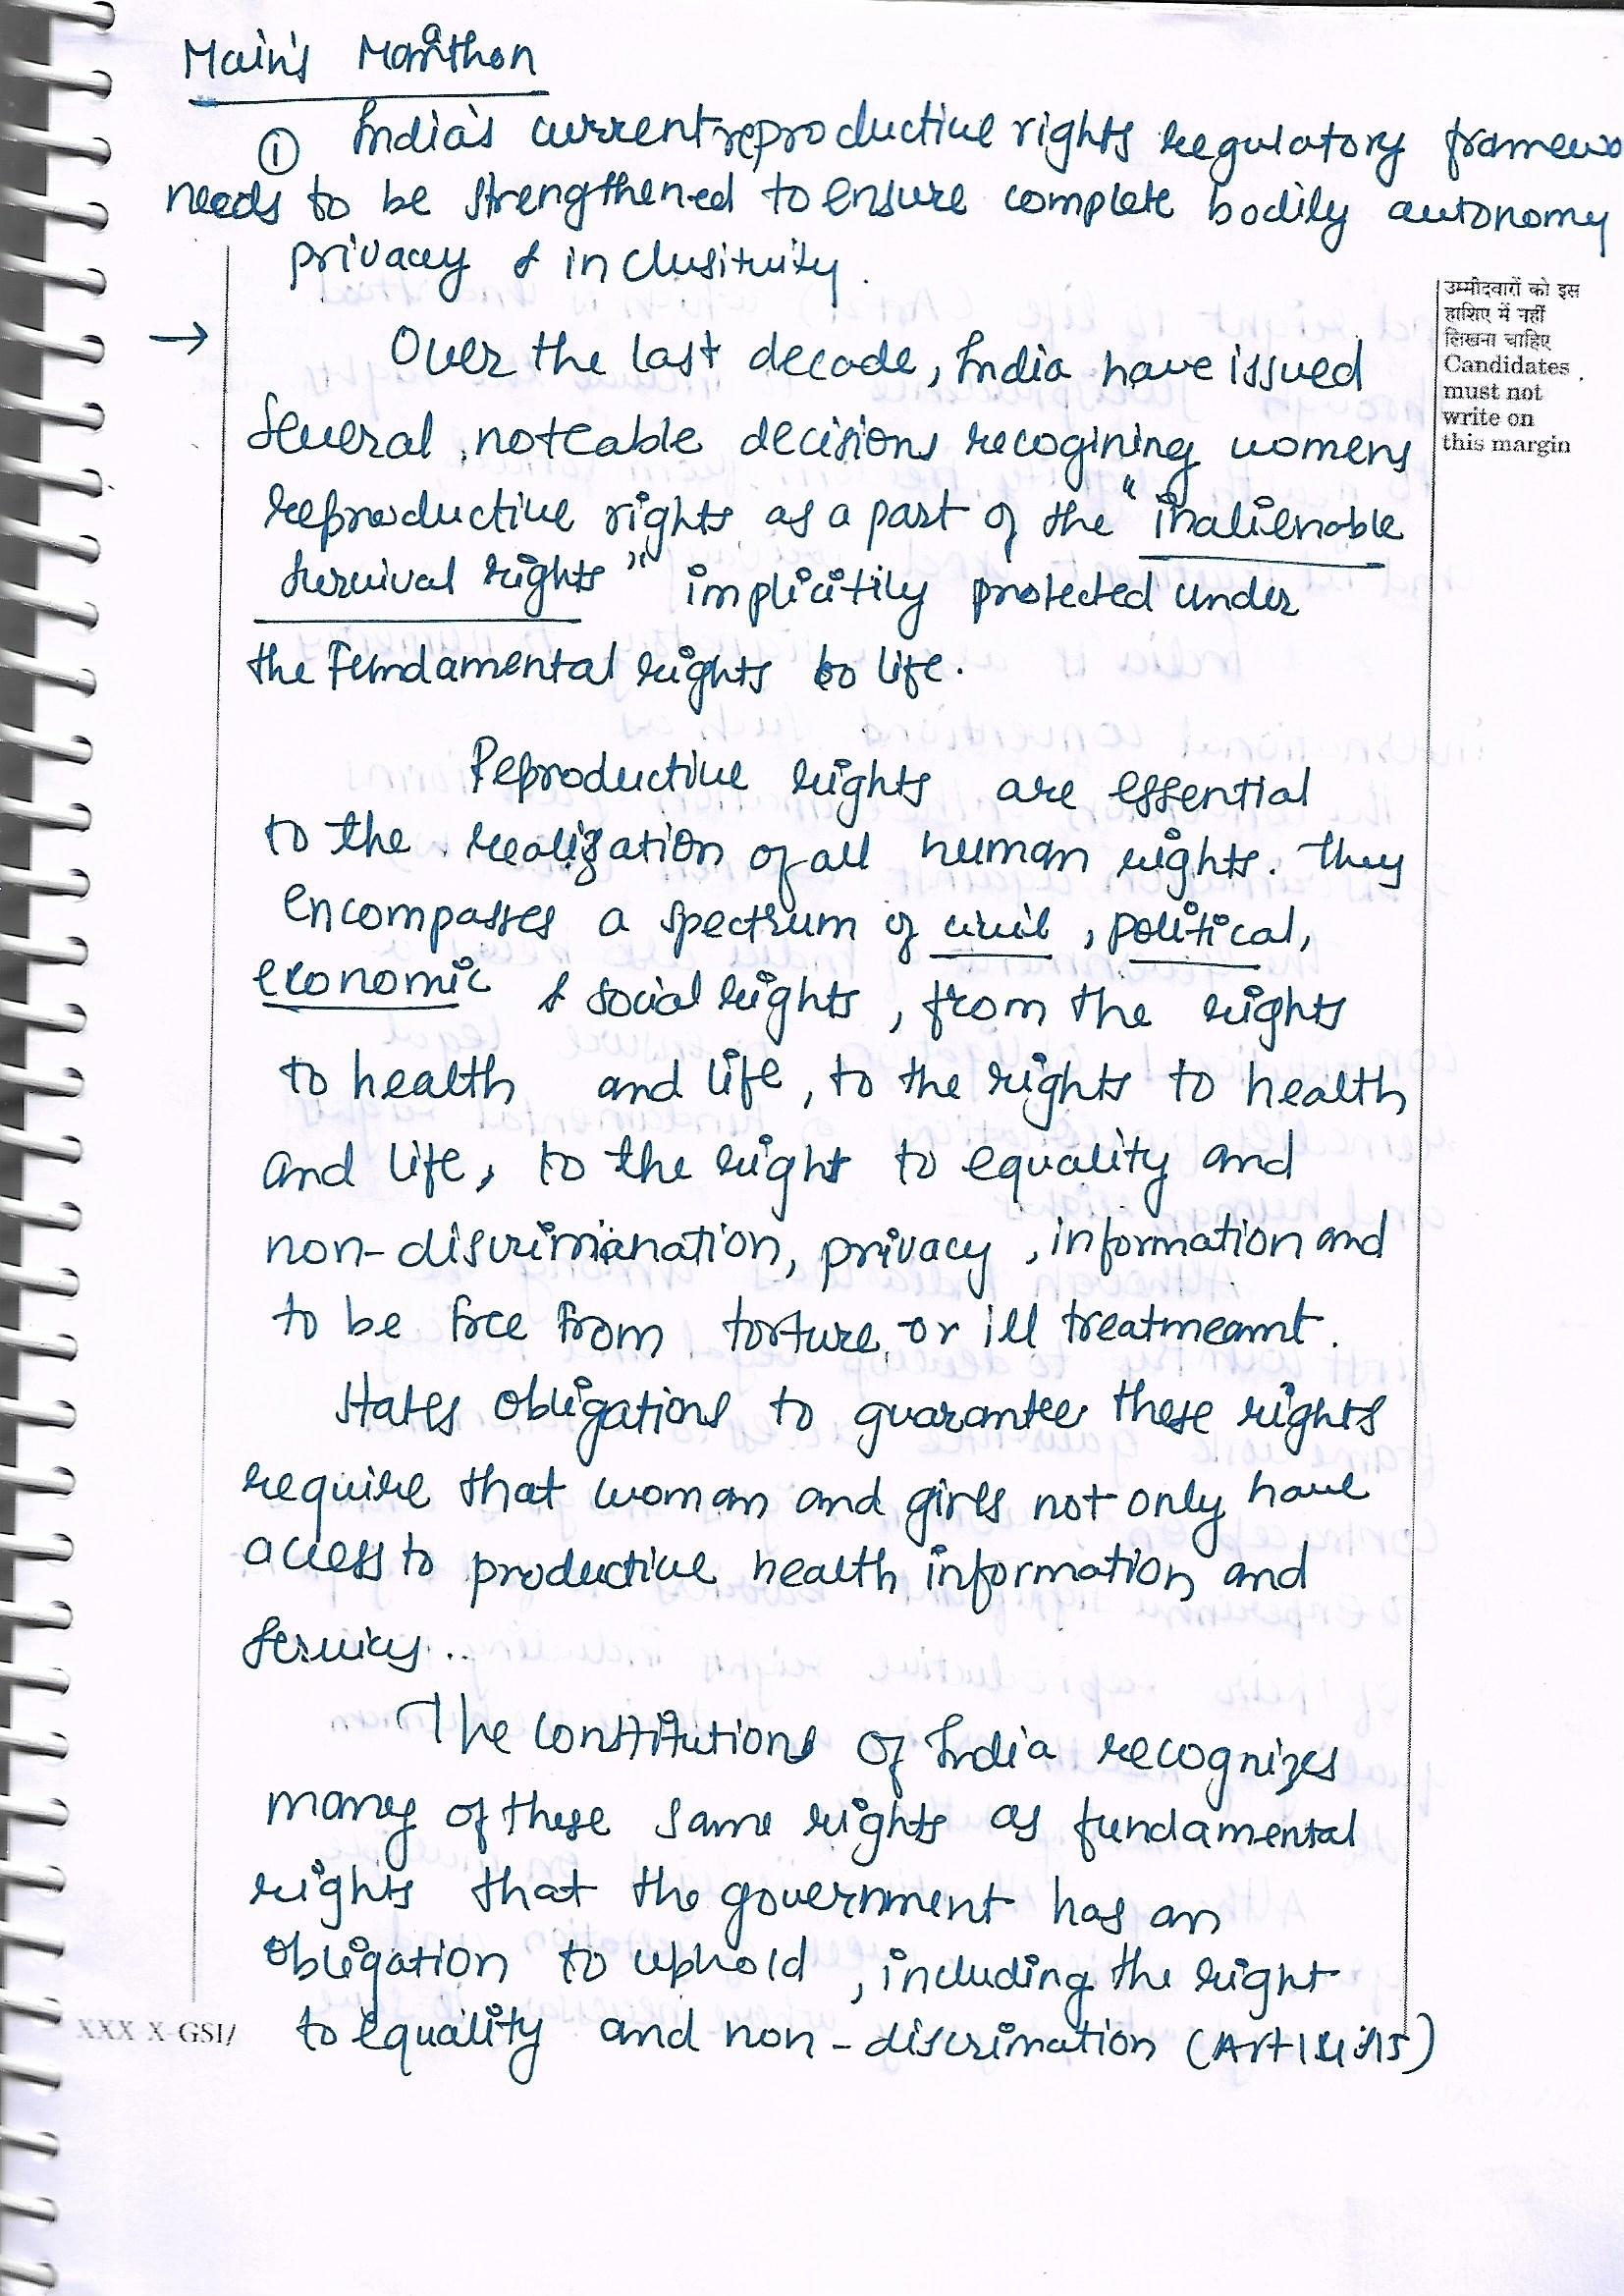 Main's Marathon
① India's current reproductive rights regulatory framewo
needs to be strengthened to ensure complete bodily autonomy
privacy & inclusitivity.
उम्मीदवारों को इस
हाशिए में नहीं
लिखना चाहिए
Candidates
must not
write on
this margin
→ Over the last decade, India have issued
several noteable decisions recogining womens
reproductive rights as a part of the "inalienable
survival rights" implicitily protected under
the Fundamental rights to life.
Reproductive rights are essential
to the realization of all human rights. They
encompasses a spectrum of civil, political,
economic & social rights, from the rights
to health and life, to the rights to health
and life, to the right to equality and
non-discrimination, privacy, information and
to be free from torture or ill treatmeamt.
States obligations to guarantee these rights
require that woman and girls not only have
access to productive health information and
services..
The constitutions of India recognizes
many of these same rights as fundamental
rights that the government has an
obligation to uphold, including the right
to equality and non-discrimation (Art
XXX X-GSI/